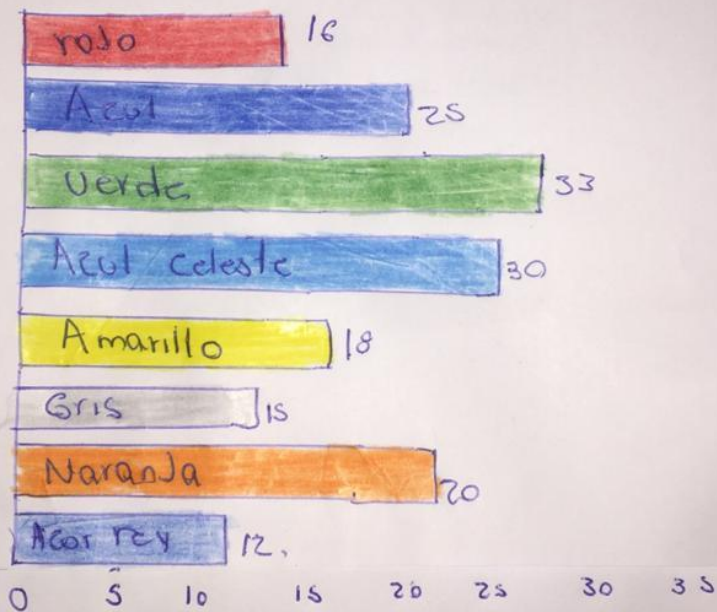 rojo 16
Azul 25
Verde 33
Azul celeste 30
Amarillo 18
Gris 15
Naranja 20
Acor rey 12.
0 5 10 15 20 25 30 35